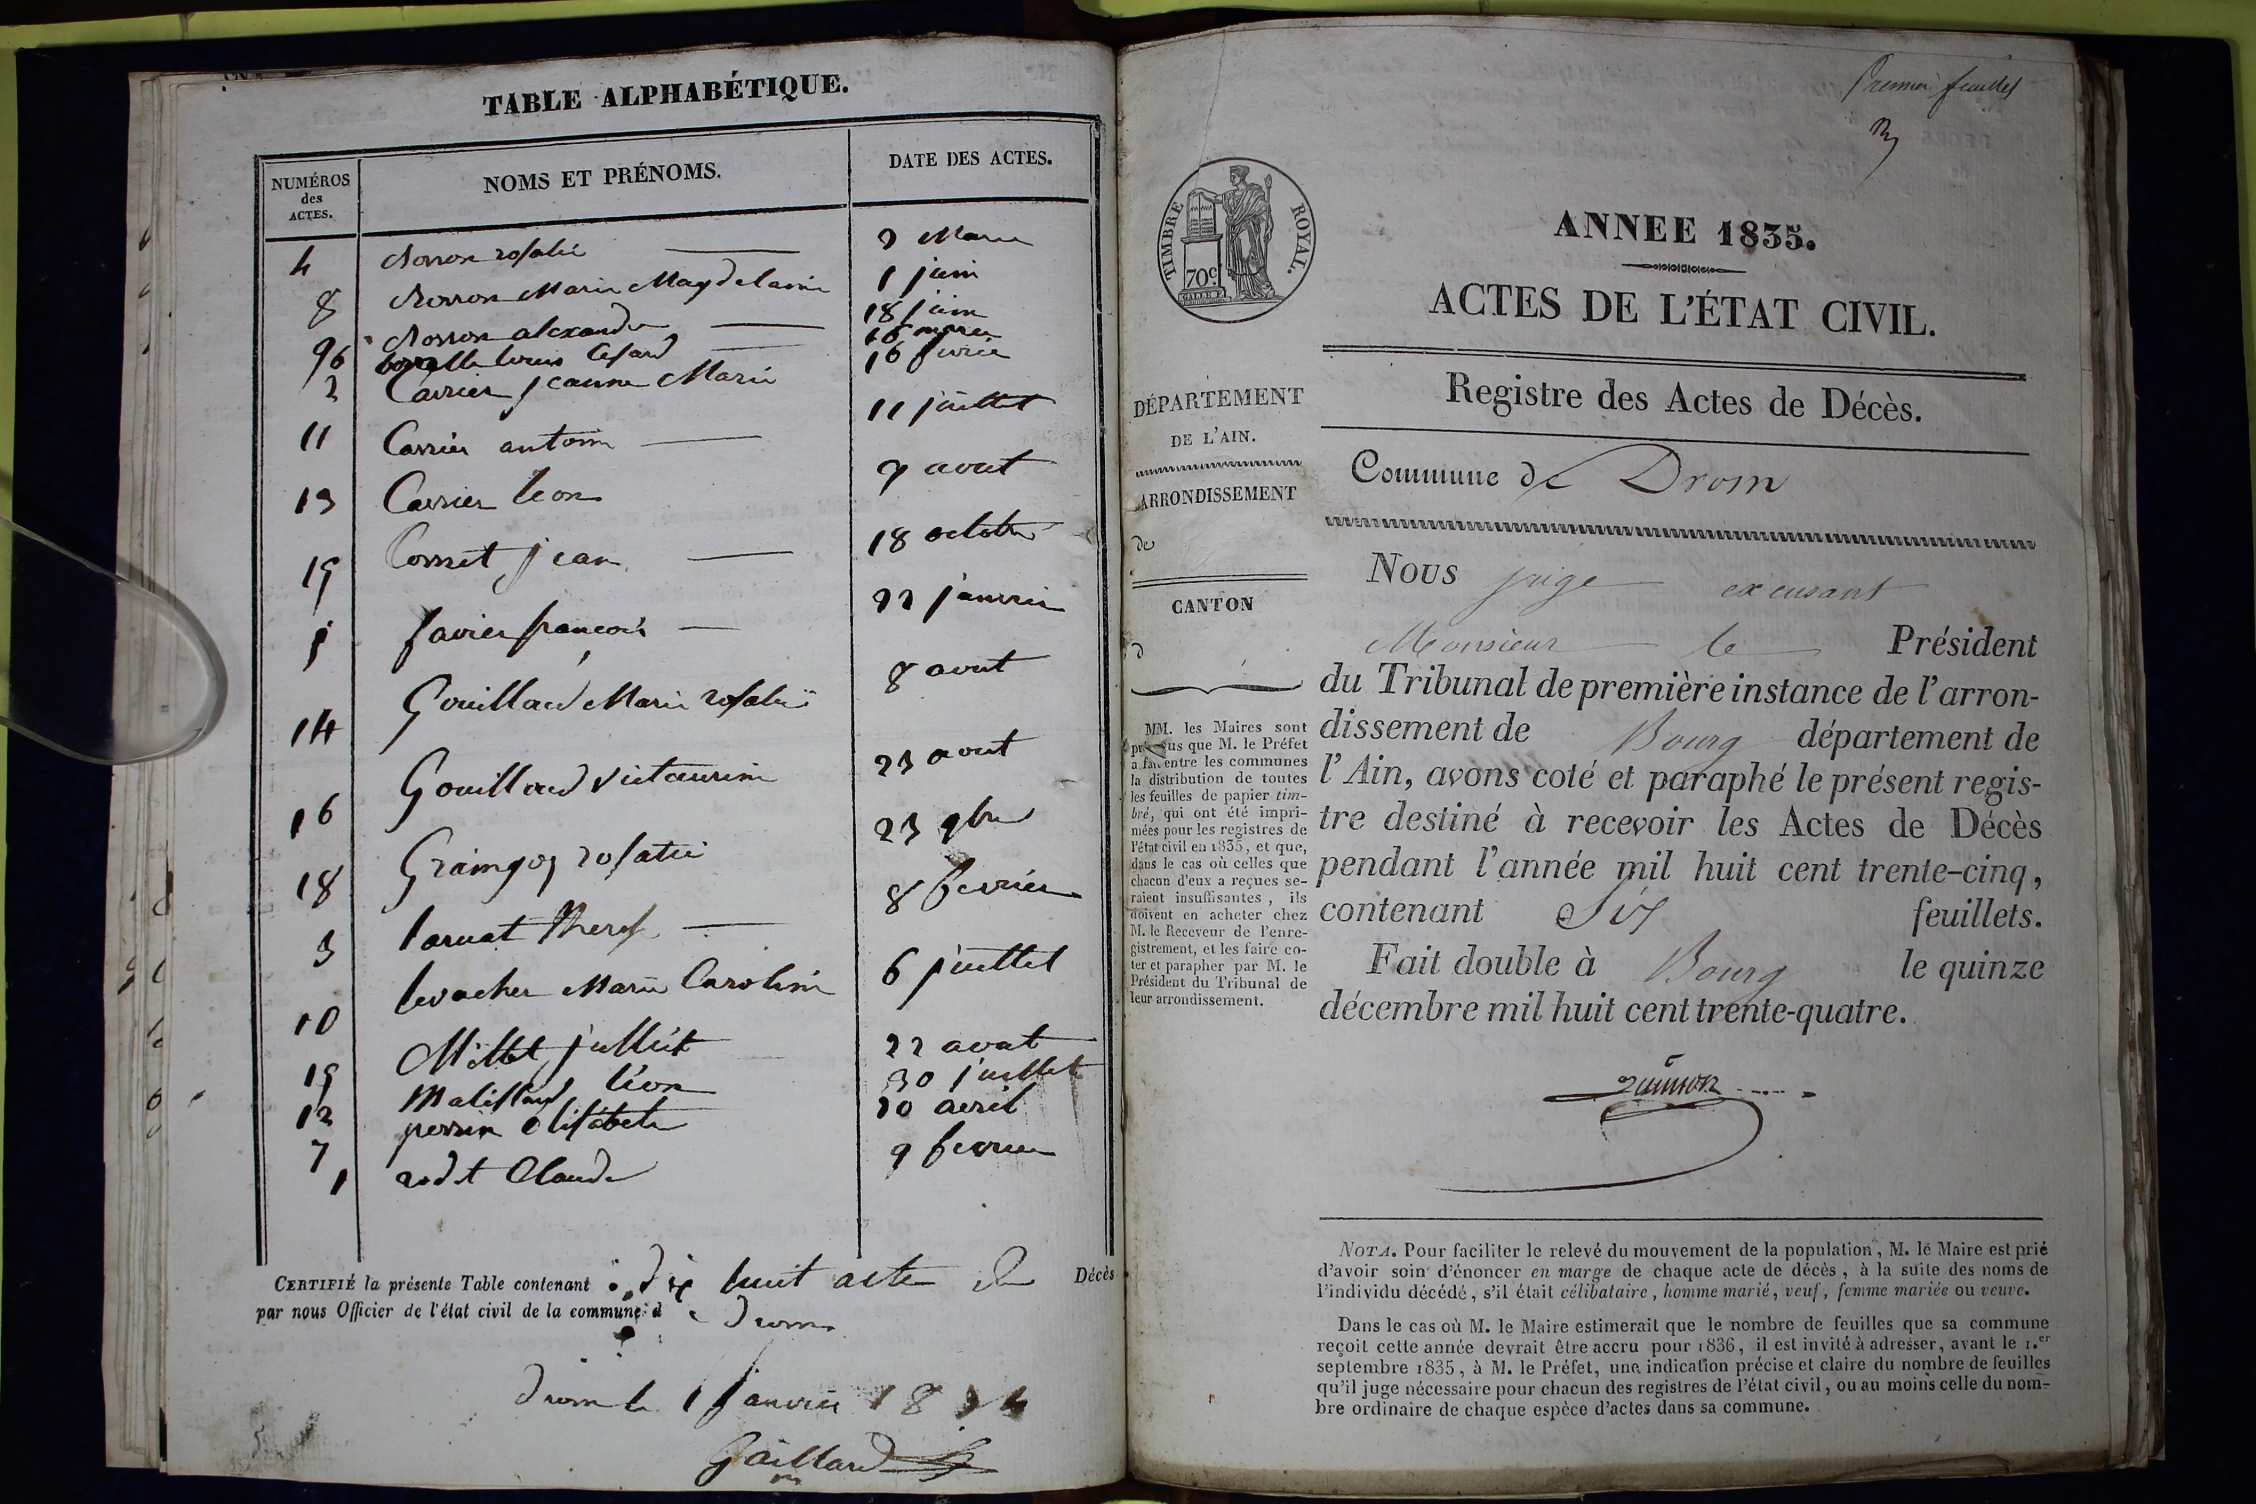 TABLE ALPHABÉTIQUE.
NUMÉROS
des
ACTES.
NOMS ET PRÉNOMS.
DATE DES ACTES.
4 rosalie
8 Marie Magdelaine 1 juin
18 juin
louis
2 Carrier jeanne Marie 16
11 Carrier antoine 11 juillet
13 Carrier leon 9 aout
19 jean 18 octobre
favier françois 22 janvier
14 Gouillard Marie rosalie 8 aout
16 Gouillard 23 aout
18 rosalie 23 9bre
3 8 fevrier
10 levacher Marie Caroline 6 juillet
Millet 22 aout
12 léon 30 juillet
7 perrin Elisabeth 20 avril
1 rodet Claude 9 fevrier
CERTIFIÉ la présente Table contenant dix huit acte de Décès
par nous Officier de l'état civil de la commune d e drom
drom le 1 janvier 18
Gaillard
Premier feuillet
TIMBRE ROYAL.
70c.
ANNEE 1835.
ACTES DE L'ÉTAT CIVIL.
Registre des Actes de Décès.
Commune de Drom
DÉPARTEMENT
DE L'AIN.
ARRONDISSEMENT
de
CANTON
d
MM. les Maires sont
prévenus que M. le Préfet
a fait entre les communes
la distribution de toutes
les feuilles de papier tim-
bré, qui ont été impri-
mées pour les registres de
l'état civil en 1835, et que,
dans le cas où celles que
chacun d'eux a reçues se-
raient insuffisantes, ils
doivent en acheter chez
M. le Receveur de l'enre-
gistrement, et les faire co-
ter et parapher par M. le
Président du Tribunal de
leur arrondissement.
Nous juge excusant
Monsieur le Président
du Tribunal de première instance de l'arron-
dissement de Bourg département de
l'Ain, avons coté et paraphé le présent regis-
tre destiné à recevoir les Actes de Décès
pendant l'année mil huit cent trente-cinq,
contenant Six feuillets.
Fait double à Bourg le quinze
décembre mil huit cent trente-quatre.
NOTA. Pour faciliter le relevé du mouvement de la population, M. le Maire est prié
d'avoir soin d'énoncer en marge de chaque acte de décès, à la suite des noms de
l'individu décédé, s'il était célibataire, homme marié, veuf, femme mariée ou veuve.
Dans le cas où M. le Maire estimerait que le nombre de feuilles que sa commune
reçoit cette année devrait être accru pour 1836, il est invité à adresser, avant le 1.er
septembre 1835, à M. le Préfet, une indication précise et claire du nombre de feuilles
qu'il juge nécessaire pour chacun des registres de l'état civil, ou au moins celle du nom-
bre ordinaire de chaque espèce d'actes dans sa commune.